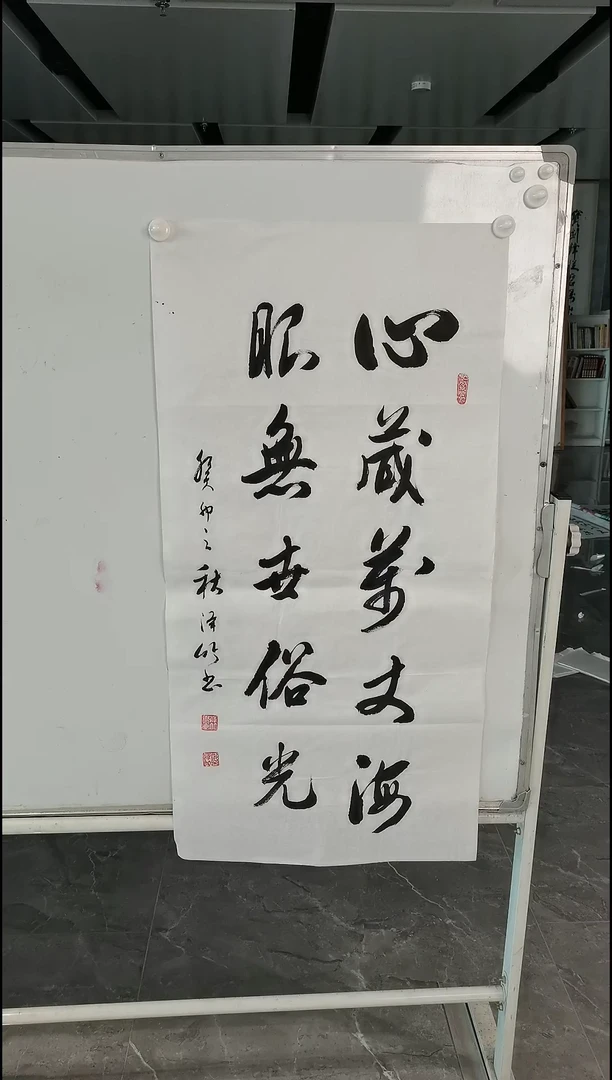 心藏萬丈海
眼無世俗光
癸卯之秋泽竹书